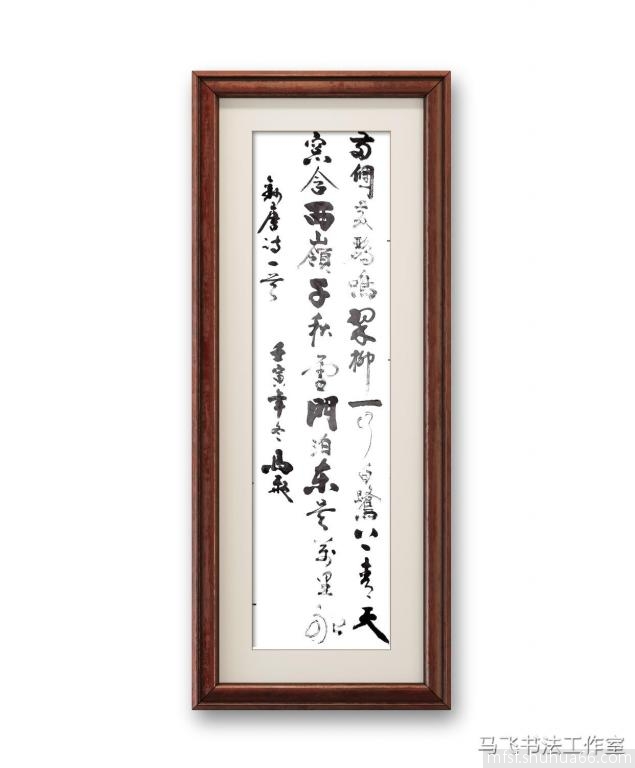 两個黄鸝鳴翠柳一行白鷺上青天
窗含西嶺千秋雪門泊东吴萬里船
錄唐诗一首 壬寅年冬 馬飛
马飞书法工作室
mfsf.shuhua66.com